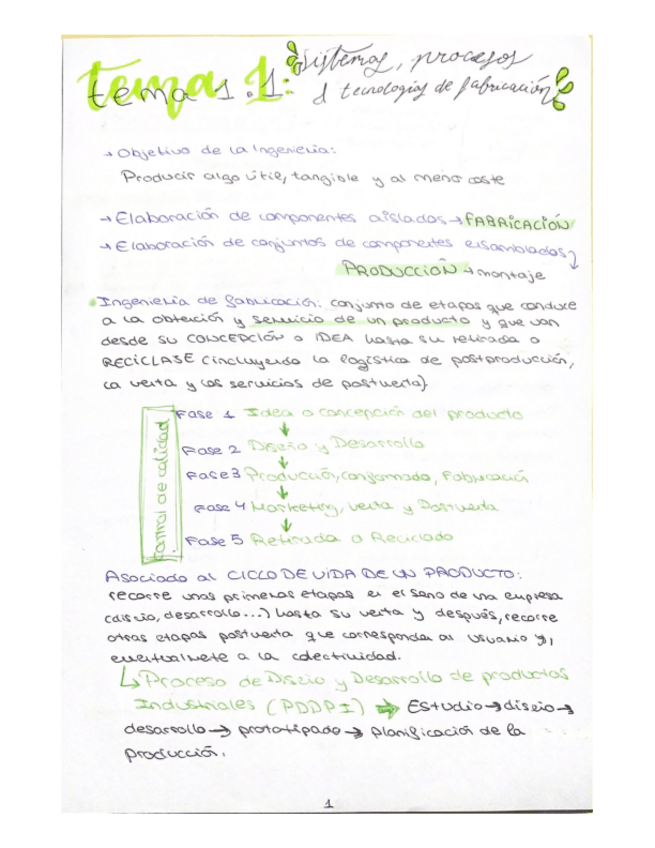 tema 1: sistemas, procesos
tema 1.1 y tecnologías de fabricación
→ Objetivo de la Ingeniería:
Producir algo útil, tangible y al menor coste
→ Elaboración de componentes aislados → FABRICACIÓN
→ Elaboración de conjuntos de componentes ensamblados
PRODUCCIÓN → montaje
• Ingeniería de fabricación: conjunto de etapas que conduce
a la obtención y servicio de un producto y que van
desde su CONCEPCIÓN o IDEA hasta su retirada o
RECICLASE (incluyendo la logística de postproducción,
la venta y los servicios de postventa)
Control de calidad
Fase 1 Idea o concepción del producto
↓
Fase 2 Diseño y Desarrollo
↓
Fase 3 Producción, conformado, Fabricación
↓
Fase 4 Marketing, venta y Postventa
↓
Fase 5 Retirada o Reciclado
Asociado al CICLO DE VIDA DE UN PRODUCTO:
recorre unas primeras etapas en el seno de una empresa
(diseño, desarrollo...) hasta su venta y después, recorre
otras etapas postventa que corresponden al usuario y,
eventualmente a la colectividad.
↳ Proceso de Diseño y Desarrollo de productos
Industriales (PDDPI) ⇒ Estudio → diseño →
desarrollo → prototipado → planificación de la
producción.
1